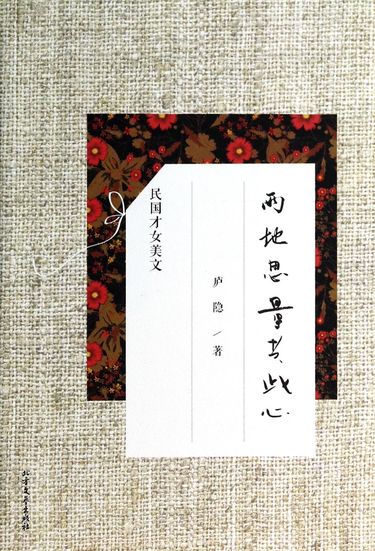 两地思量共此心
庐隐/著
民国才女美文
北方文艺出版社